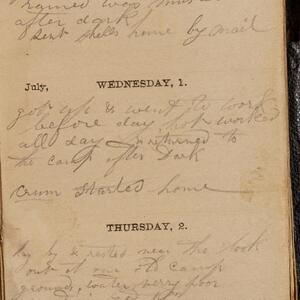 rained
after dark
Sent shells home by mail
July, WEDNESDAY, 1.
got up & went to work
before day, worked
all day returned to
the camp after dark
Crum Started home
THURSDAY, 2.
lay by & rested near the
out at our old camp
ground, water very poor